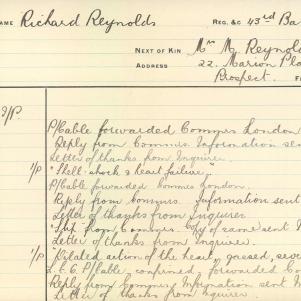 NAME Richard Reynolds REG. &C 43rd Ba
NEXT OF KIN Mrs M. Reynold
ADDRESS 22. Marion Pla
Prospect.
P/Cable forwarded Commrs London
Reply from Commrs. Information sen
Letter of thanks from Inquirer.
1/P "Shell shock & heart failure"
P/Cable forwarded Commrs London.
Reply from Commrs. Information sent
Letter of thanks from Inquirer
from Commrs. Copy of same sent
Letter of thanks from Inquirer.
1/P "Dilated action of the heart, gassed, seve
P/Cable "confirmed" forwarded Co
Reply from Commrs Information sent I
Letter of thanks from Inquirer